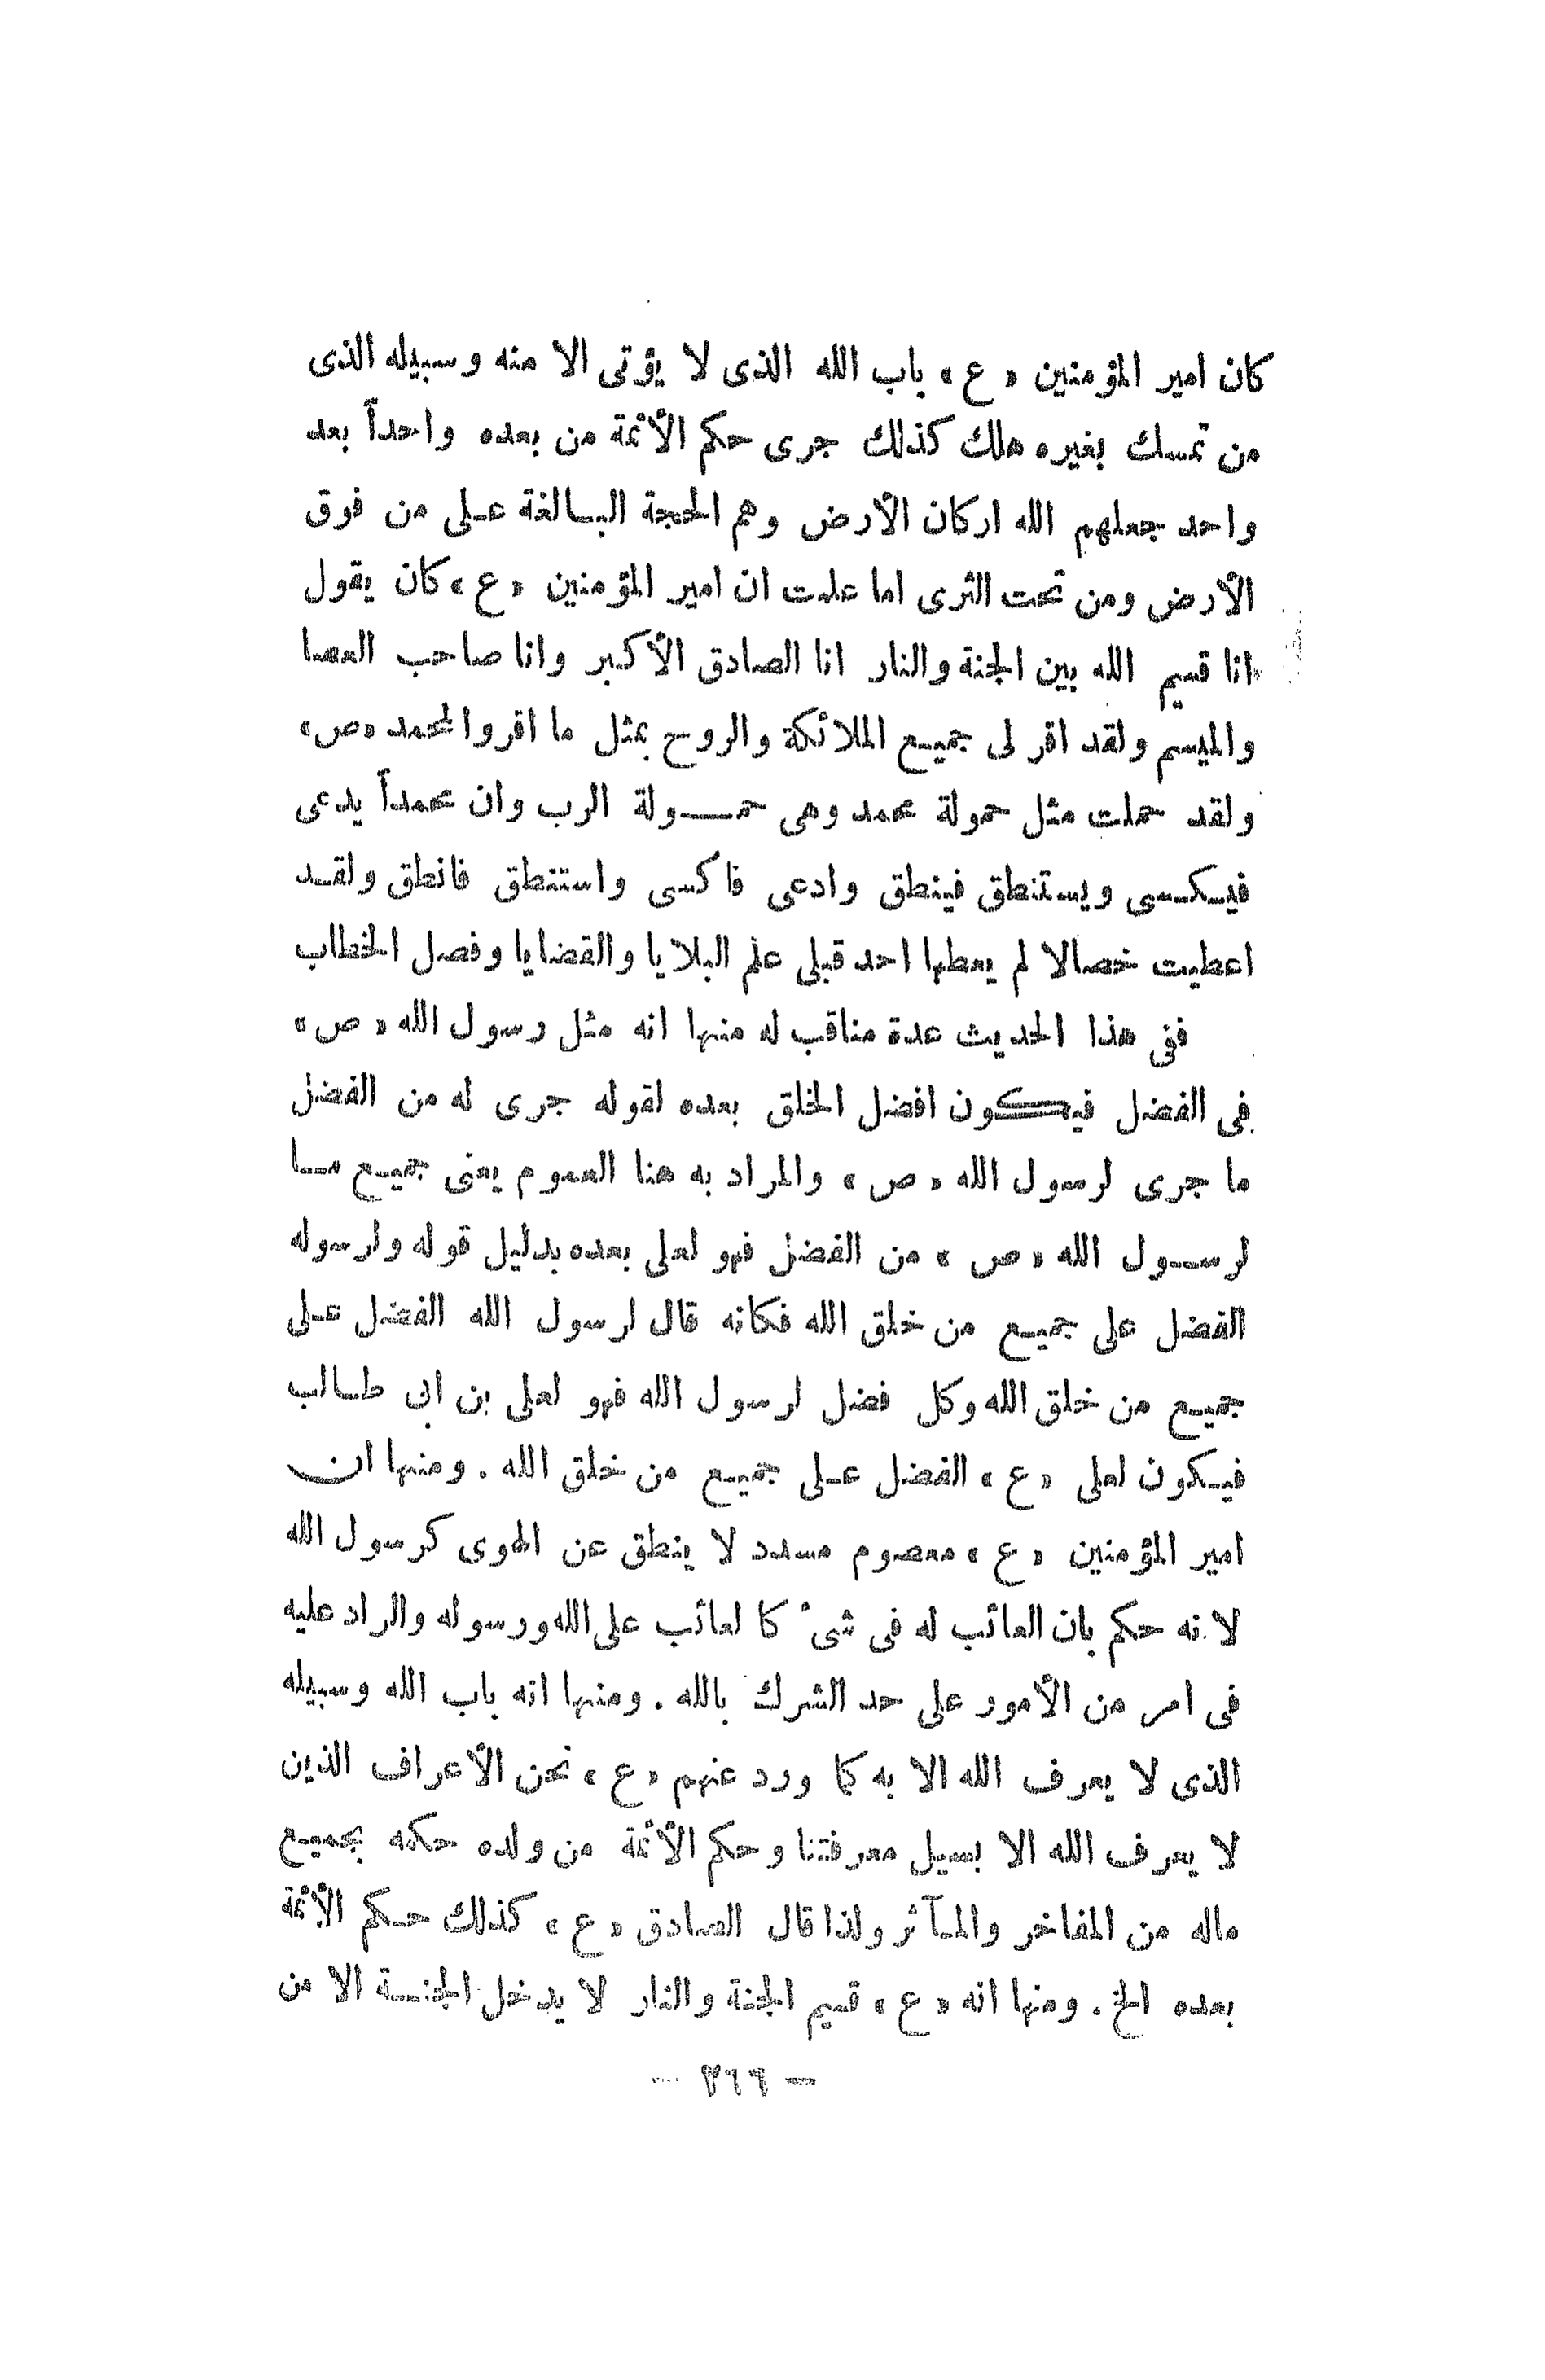 كان امير المؤمنين «ع» باب الله الذى لا يؤتى الا منه وسبيله الذى
من تمسك بغيره هلك كذلك جرى حكم الأئمة من بعده واحداً بعد
واحد جعلهم الله اركان الأرض وهم الحجة البالغة على من فوق
الأرض ومن تحت الثرى اما علمت ان امير المؤمنين «ع» كان يقول
انا قسيم الله بين الجنة والنار انا الصادق الأكبر وانا صاحب العصا
والميسم ولقد اقر لى جميع الملائكة والروح بمثل ما اقروا لمحمد «ص»
ولقد حملت مثل حمولة محمد وهى حمـولة الرب وان محمداً يدعى
فيكسى ويستنطق فينطق وادعى فاكسى واستنطق فانطق ولقد
اعطيت خصالا لم يعطها احد قبلى علم البلايا والقضايا وفصل الخطاب
ففى هذا الحديث عدة مناقب له منها انه مثل رسول الله «ص»
فى الفضل فيكون افضل الخلق بعده لقوله جرى له من الفضل
ما جرى لرسول الله «ص» والمراد به هنا العموم يعنى جميع ما
لرسول الله «ص» من الفضل فهو لعلى بعده بدليل قوله ولرسوله
الفضل على جميع من خلق الله فكانه قال لرسول الله الفضل على
جميع من خلق الله وكل فضل لرسول الله فهو لعلى بن ابى طالب
فيكون لعلى «ع» الفضل على جميع من خلق الله . ومنها ان
امير المؤمنين «ع» معصوم مسدد لا ينطق عن الهوى كرسول الله
لانه حكم بان العائب له فى شىء كالعائب على الله ورسوله والراد عليه
فى امر من الأمور على حد الشرك بالله . ومنها انه باب الله وسبيله
الذى لا يعرف الله الا به كما ورد عنهم «ع» نحن الأعراف الذين
لا يعرف الله الا بسبيل معرفتنا وحكم الأئمة من ولده حكمه بجميع
ماله من المفاخر والمآثر ولذا قال الصادق «ع» كذلك حكم الأئمة
بعده الخ . ومنها انه «ع» قسيم الجنة والنار لا يدخل الجنة الا من
— ٣٦٦ —